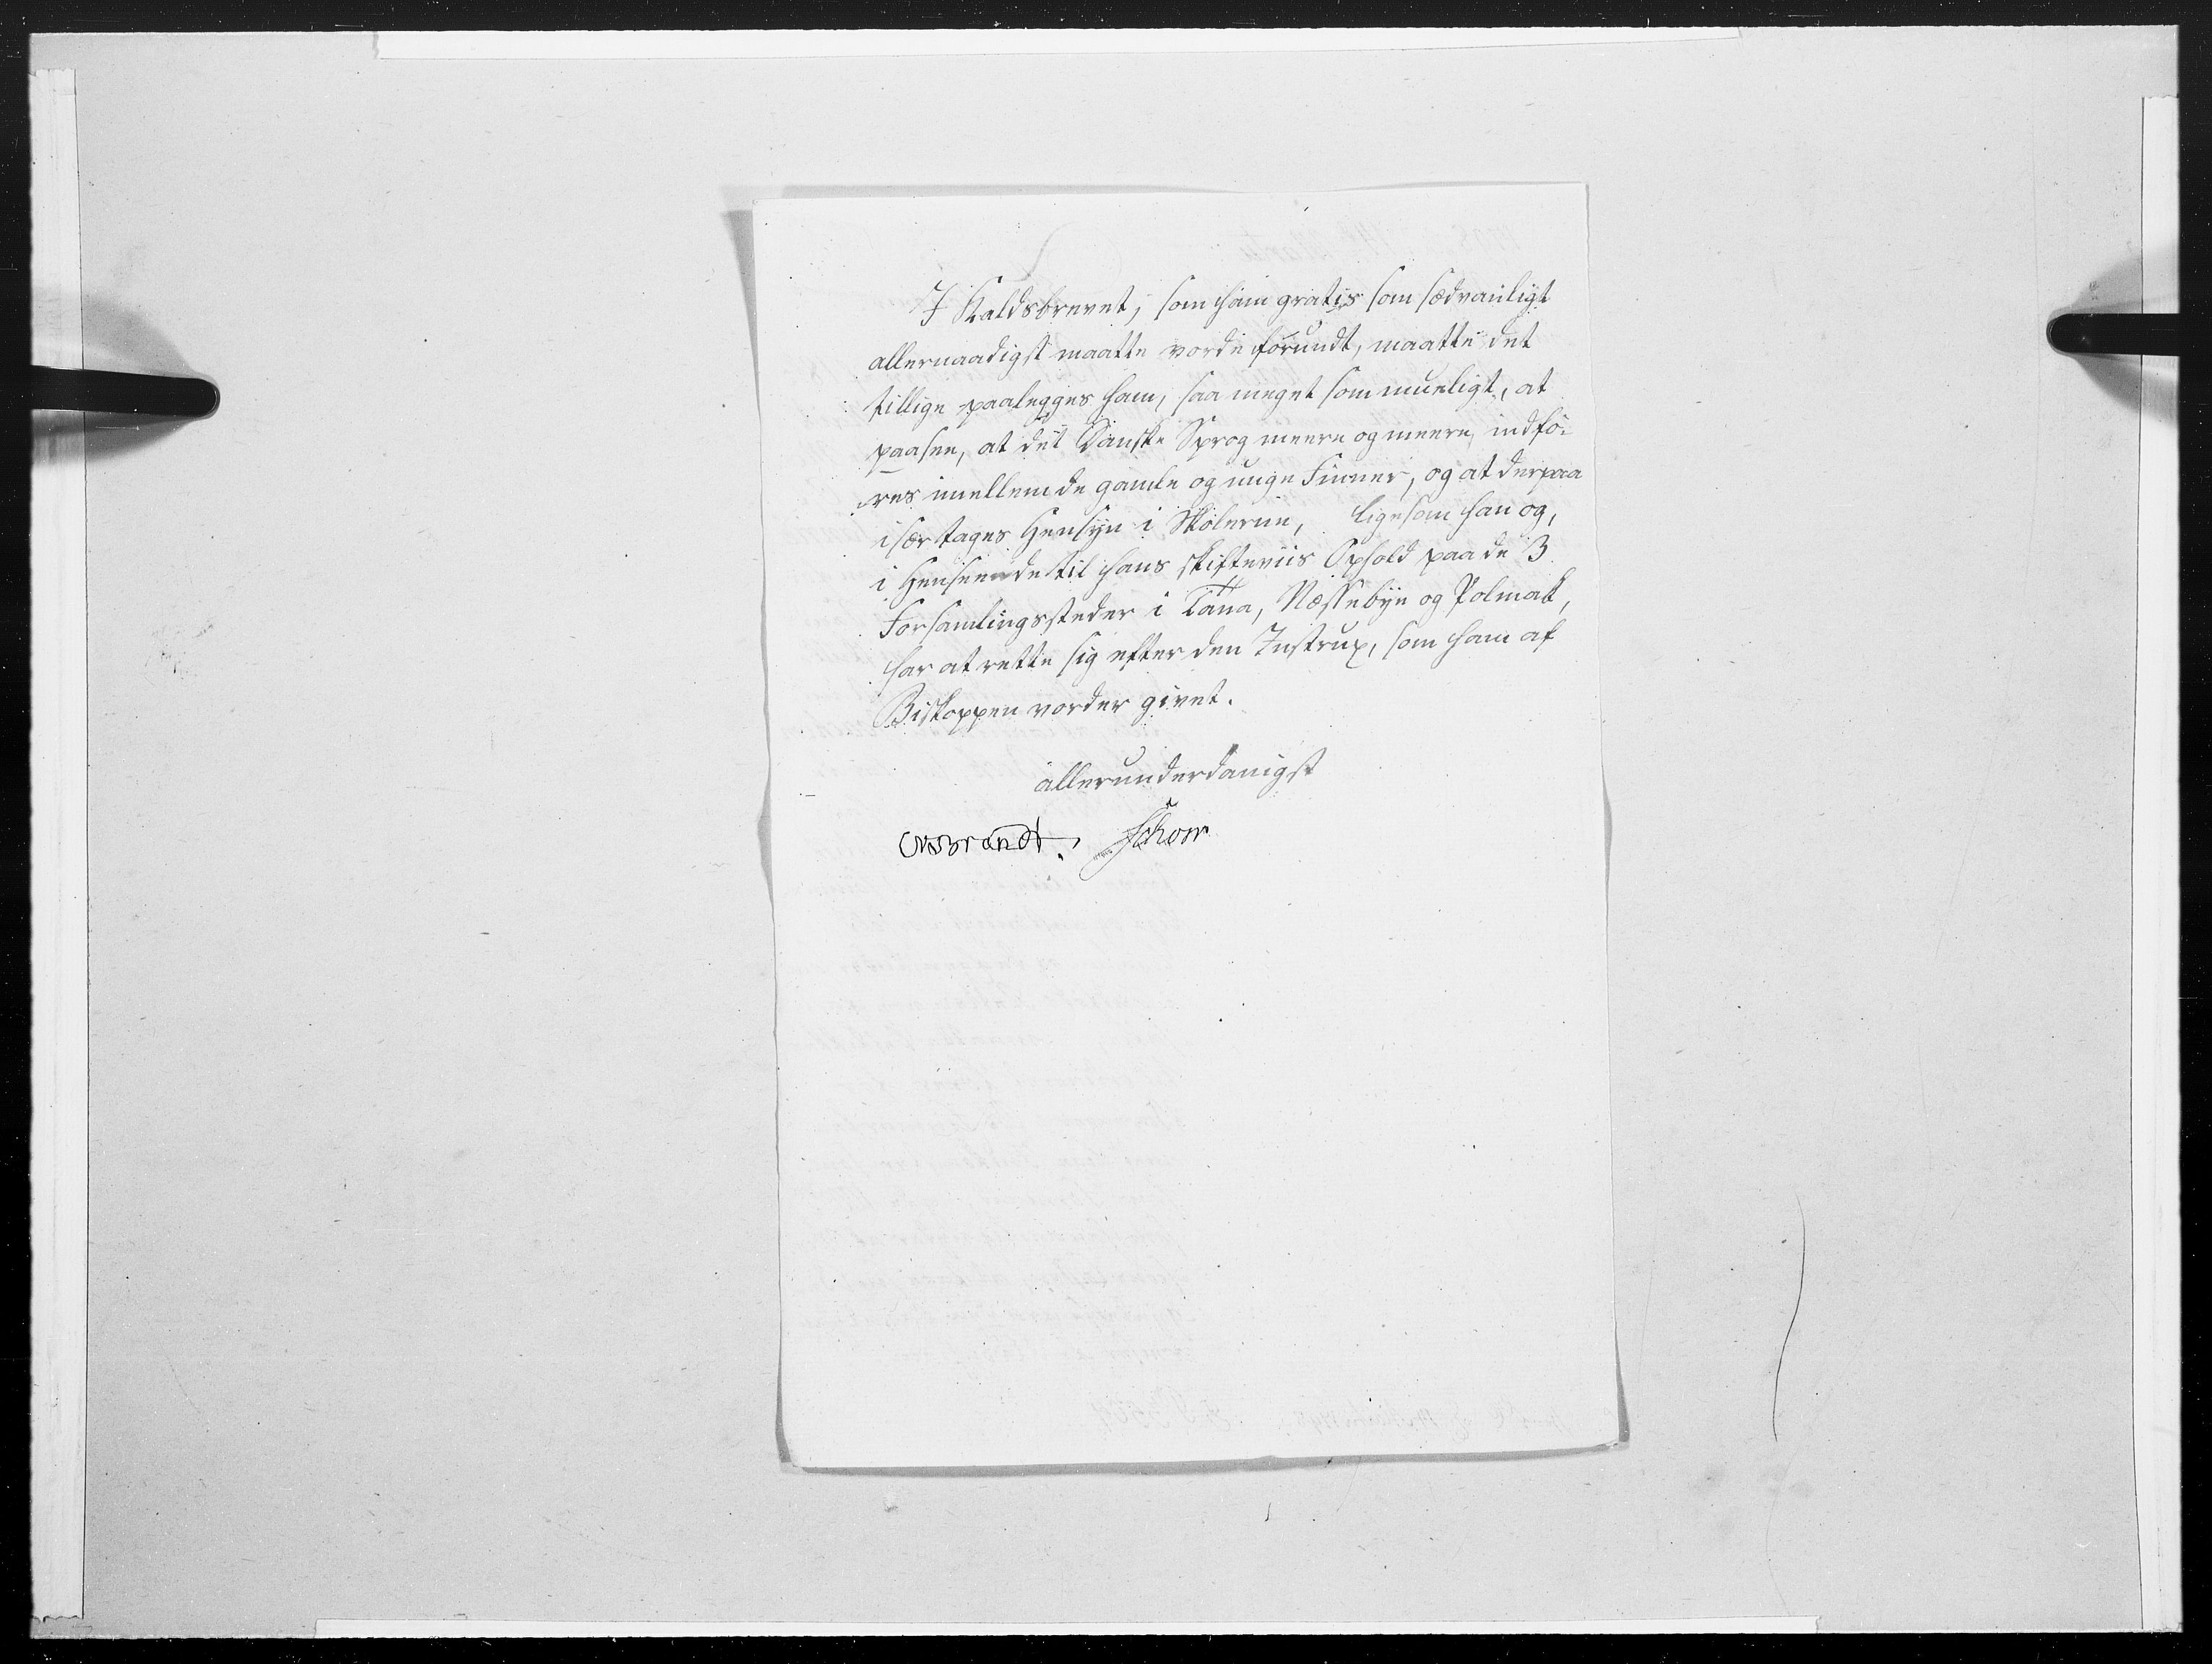 I Kaldsbrevet, som ham gratis som sædvanligt
allernaadigst maatte vorde forundt, maatte det
tillige paalegges ham, saa meget som mueligt, at
paasee, at det Danske Sprog meere og meere indfø-
res imellem de gamle og unge Finner, og at derpaa
især tages Hensyn i Skolerne, ligesom han og,
i Henseende til hans skifteviis Ophold paa de 3
Forsamlingssteder i Tana, Næssebye og Polmak,
har at rette sig efter den Instrux, som ham af
Biskoppen vorder givet.
allerunderdanigst
Schow